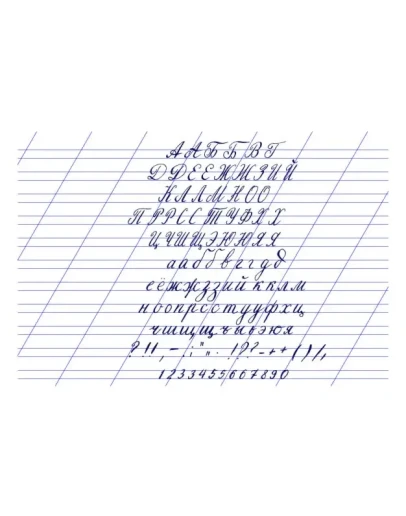 ААББВГ
ДДЕЕЖЖЗИЙ
КЛЛМНОО
ПРРССТУФХХ
ЦЧШЩЭЮЮЯЯ
аабббвггдд
еёжжззийкклм
ноопрсстууфхц
чшщцъыьэюя
1234455667890